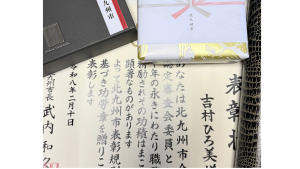 表彰状
吉村ひろ美
あなたは北九州市
認定審査会委員と
年の永きにわたり職
精励されその功績はまこ
顕著なものがあります
よって北九州市表彰規
基づき功労章を贈りこ
表彰します
令和八年二月十日
九州市長 武内和久
九州市